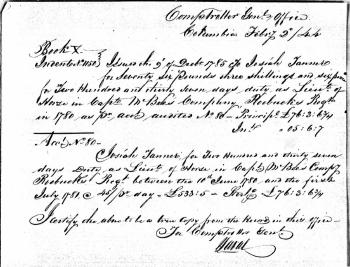 Comptroller Genl's Office
Columbia Feby 2d /44
Book X
Indent No. 1150 } Issued the 9th of Decbr 1785 to Josiah Tanner
for Seventy six Pounds three shillings and six pence
for Two Hundred and thirty Seven days duty as Lieut of
Horse in Capt. McBees Company, Roebucks Regt
in 1780, as pr acct audited No 80 - Principl £76:3:6¾
Int. £5:6:7
Acct No. 80 -
Josiah Tanner, for Two Hundred and thirty seven
days Duty as Lieut of Horse in Capt McBees Compy
Roebucks' Regt between the 10th June 1780, and the first
July 1781 @ 45/ pr day - £533:5 - £76:3:6¾
I certify the above to be a true copy from the Record in this office
Comptroller Genl